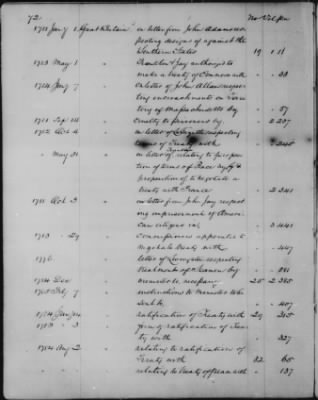 72. No Vol Pa
1781 Jany 1 Great Britain on letter from John Adams res
pecting designs of against the
Southern States 19 1 11
1783 May 1 " Franklin & Jay authorized to
make a treaty of Commerce with " 88
1784 Jany 7 " on letter of John Allan respec
ting encroachments on Terri
tory of Massachusetts by " 57
1781 Sep 14 " Cruelty to prisoners by - 2 237
1782 Oct 4 " on letter of Lafayette respecting
terms of treaty with 245
" May 31 " on letter of relating to prepara
tion of terms of Peace by &
proposition of to negotiate a
treaty with France - 2 341
1781 Oct 3 " on letter from John Jay respect
ing imprisonment of Ameri
can citizens in - 3
1783 - 29 " Commissioners appointed to
negotiate treaty with - 447
1776 " letter of Livingston respecting
treatment of by
1784 Dec " minister to, necessary 25 2 385
1785 Feby 7 " instructions to Minister to be
sent to - 407
1784 Jany 14 " ratification of Treaty with 29 215
1783 " 3 " form of ratification of Trea
ty with 327
1784 Aug 2 " relating to ratification of
Treaty with 32 65
" relating to treaty of Peace with - 137